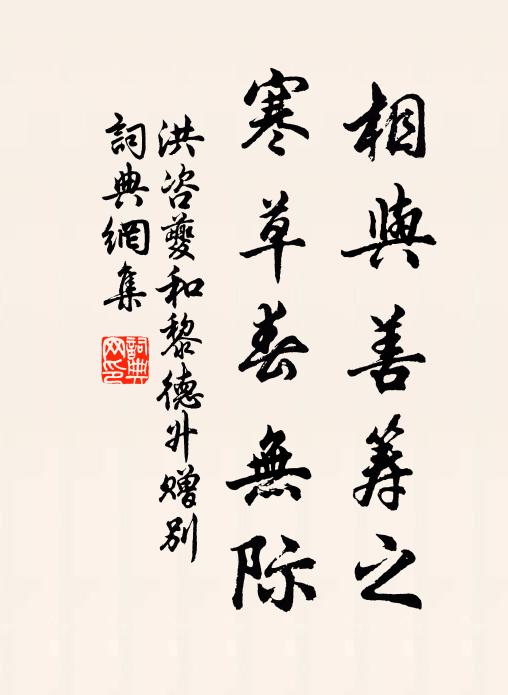 相與善筭之
寒草春無際
洪咨夔和黎德升贈别
詞典網集
詞典
网印